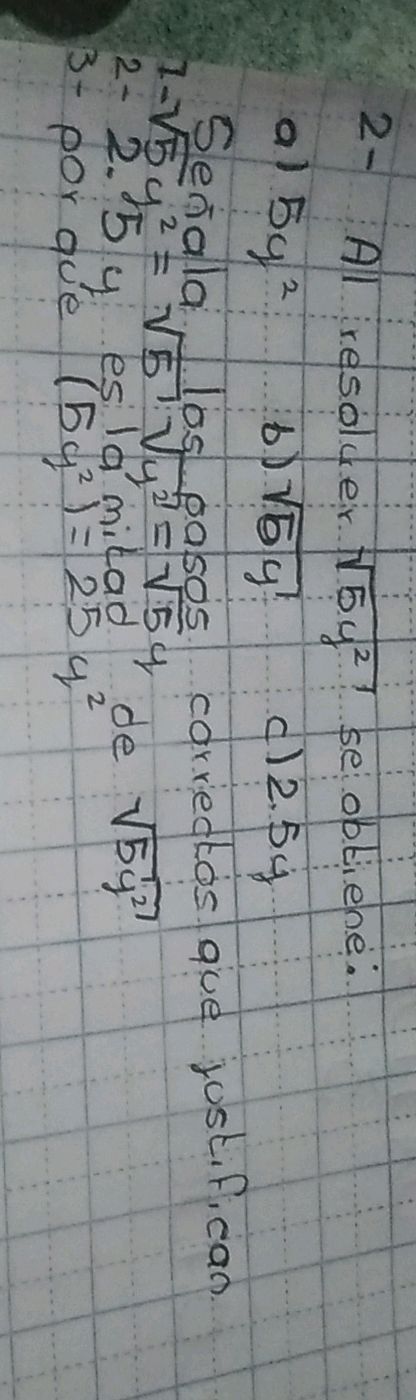 2- Al resolver √5y² se obtiene:
a) 5y² b) √5y c) 2.5y
Señala los pasos correctos que justifican
1- √5y² = √5 √y² = √5 y
2- 2.5 y es la mitad de √5y²
3- por que (5y²) = 25y²